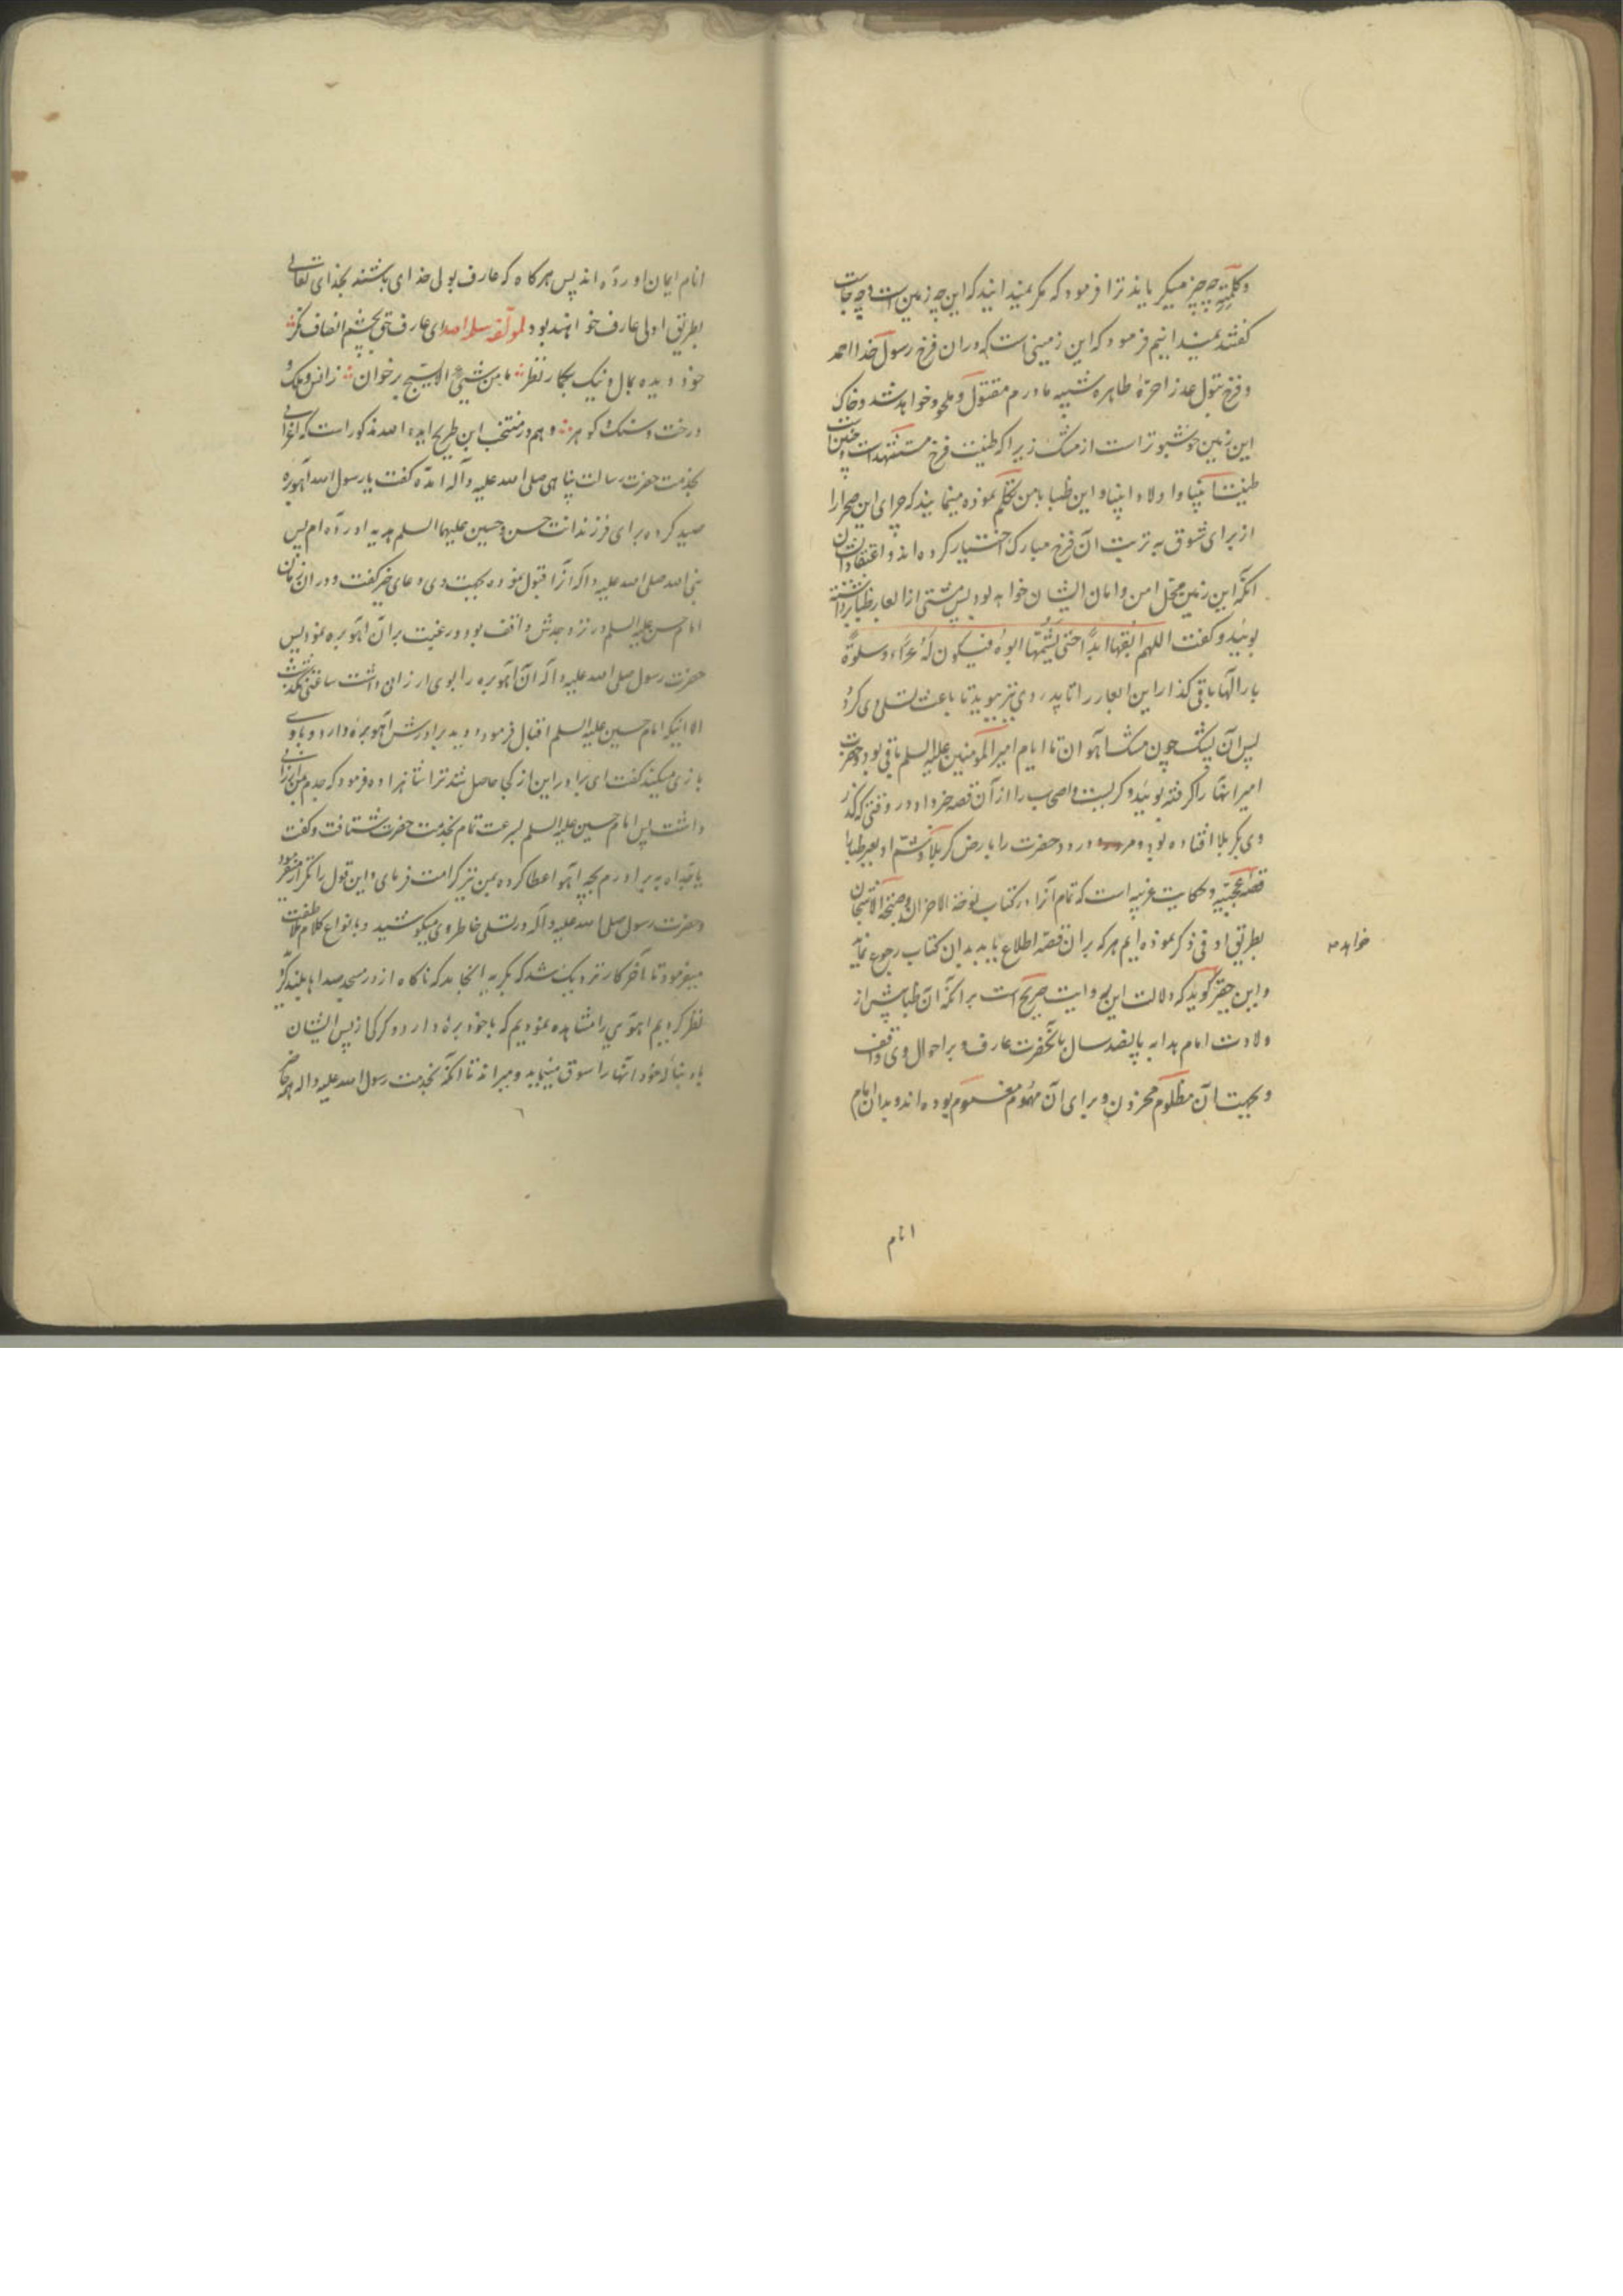 و کلمته چه چیز میگریاند ترا فرمود که مگر نمیدانید که این چه زمین است و چه جاست
گفتند نمیدانیم فرمود که این زمینی است که دران فرخ رسول خدا احمد
و فرخ بتول عذرا حرّهٔ طاهره شبیه مادرم مقتول و ملحود خواهد شد و خاک
این زمین خوشبوتر است از مشک زیراکه طینت فرخ مستشهد است و چنین است
طینت انبیا و اولاد انبیا و این ظبا با من تکلّم نموده مینمایند که چرای این صحرا را
از برای شوق به تربت آن فرخ مبارک اختیار کرده اند و اعتقادشان
آنکه این زمین محل امن و امان ایشان خواهد بود پس مشتی از ابعار ظبا برداشته
بوئید و گفت اللهم ابقها ابدًا حتی یشمّها ابوه فیکون له عزاء و سلوة
بار الها باقی گذار این ابعار را تا پدر وی نیز ببوید تا باعث تسلی وی گردد
پس آن پشک چون مشک آهوان تا ایام امیر المومنین علیه السلم باقی بود و حضرت
امیر انها را گرفته بوئید و گریست و اصحاب را از آن قصه خبر داد در وقتی که گذر
وی بکربلا افتاده بود و ورود حضرت را بارض کربلا و شمّ او بعیر ظبا را
قصه عجیبه و حکایت غریبه است که تمام آنرا در کتاب نوحة الاحزان و صیحة الاشجان
بطریق اوفی ذکر نموده ایم هر که بران قصه اطلاع یابد بدان کتاب رجوع نماید
خواهد
و این حقیر گوید که دلالت این روایت صریح است بر آنکه آن ظبا پیش از
ولادت امام بدا به پانصد سال بآنحضرت عارف و بر احوال وی واقف
و بجهت آن مظلوم محزون و برای آن مهموم مغموم بوده اند و بدان امام
انام
انام ایمان اورده اند پس هرگاه که عارف بولی خدای باشند بخدای تعالی
بطریق اولی عارف خواهند بود لمولفه سلمه الله ای عارف حق بچشم انصاف نگر
خود دیده بمال و نیک بگمار نظر ما من شیئ الا یسبّح بر خوان زانس و ملک و
درخت و سنگ و گوهر و هم در منتخب ابن طریح ایده الله مذکور است که اعرابی
بخدمت حضرت رسالت پناهی صلی الله علیه و آله آمده گفت یا رسول الله آهوبره
صید کرده برای فرزندانت حسن و حسین علیهما السلم هدیه اورده ام پس
نبی الله صلی الله علیه و اله آنرا قبول نموده بجهت وی دعای خیر گفت و دران زمان
امام حسن علیه السلم در نزد جدش واقف بود و رغبت بر آن آهوبره نمود پس
حضرت رسول صلی الله علیه و اله آن آهوبره را بوی ارزانی داشت ساعتی نگذشت
الا اینکه امام حسین علیه السلم اقبال فرمود و دید برادرش آهوبرهٔ دارد و با وی
بازی میکند گفت ای برادر این از کجا حاصل شد ترا شاهزاده فرمود که جدم بمن ارزانی
داشت پس امام حسین علیه السلم بسرعت تمام بخدمت حضرت شتافت و گفت
یا جداه به برادرم بچه آهو اعطا کرده بمن نیز کرامت فرمای و این قول را مکرر میفرمود
و حضرت رسول صلی الله علیه و اله در تسلی خاطر وی میکوشید و بانواع کلام ملاطفت
میفرمود تا آخر کار نزدیک شد که بگریه انجامد که ناگاه از در مسجد صداها بلند گردید
نظر کردیم اهوی را مشاهده نمودیم که با خود برهٔ دارد و گرگی از پس ایشان
بدنباله خود آنها را سوق مینماید و میراند تا آنکه بخدمت رسول الله علیه و اله حاضر